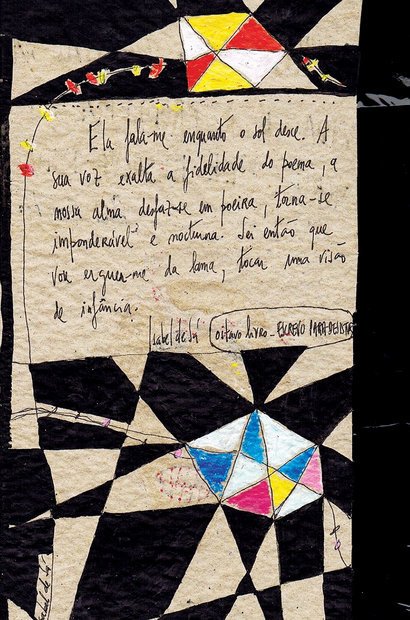 Ela fala-me enquanto o sol desce. A
sua voz exalta a fidelidade do poema, a
nossa alma desfaz-se em poeira, torna-se
imponderável e nocturna. Sei então que
vou erguer-me da lama, tocar uma visão
de infância.
Isabel de Sá (oitavo livro - ESCREVO PARA DESISTIR
Isabel de Sá